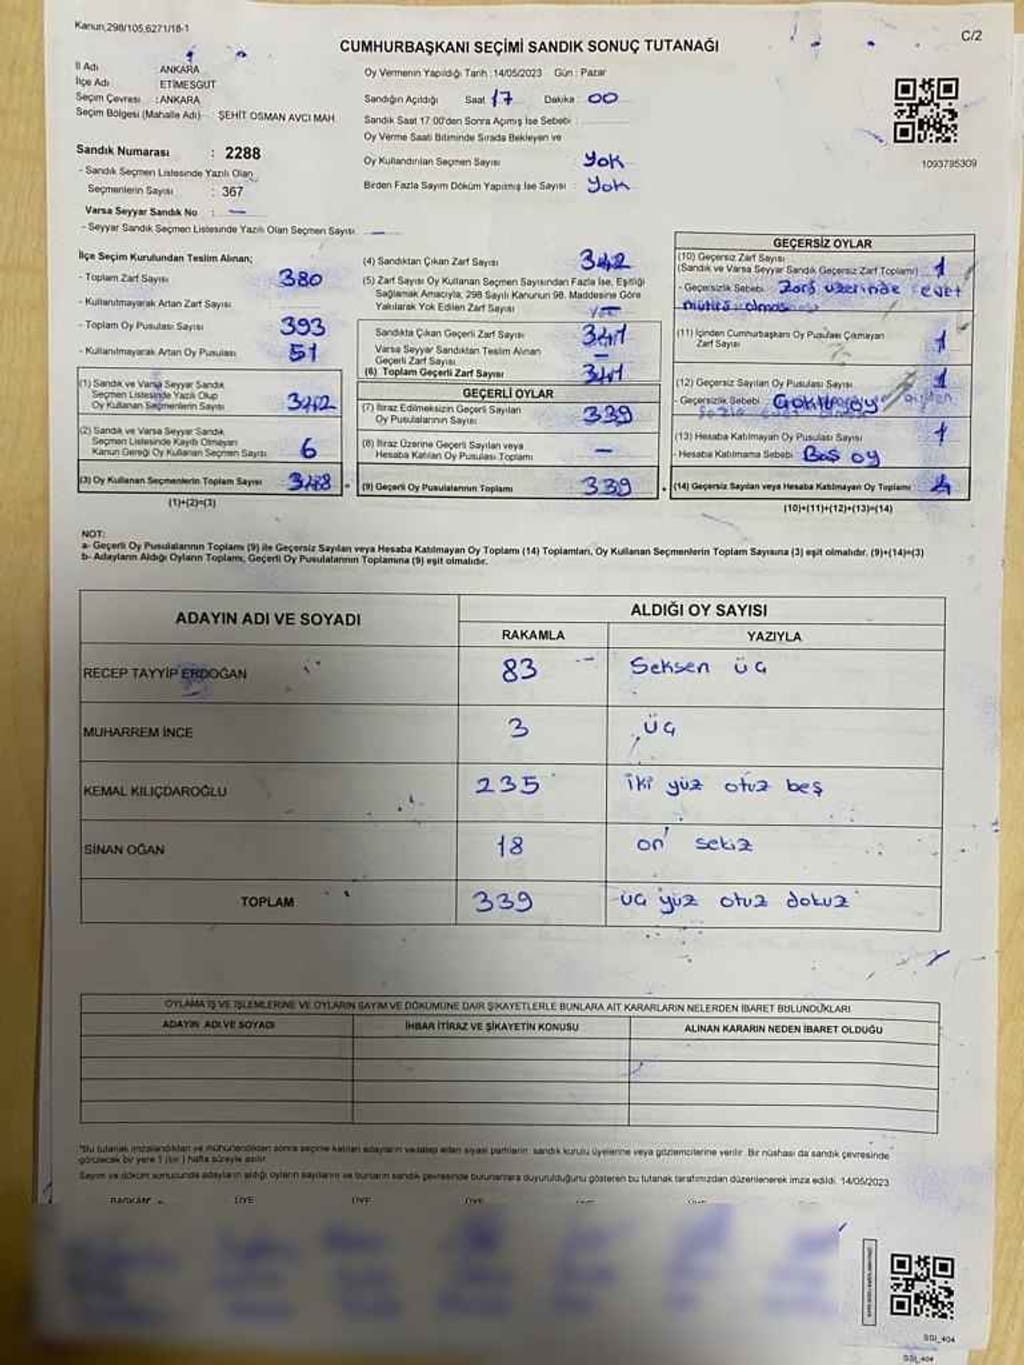 Kanun,298/105,6271/18-1
C/2
CUMHURBAŞKANI SEÇİMİ SANDIK SONUÇ TUTANAĞI
İl Adı : ANKARA
İlçe Adı : ETİMESGUT
Seçim Çevresi : ANKARA
Seçim Bölgesi (Mahalle Adı) ŞEHİT OSMAN AVCI MAH.
Sandık Numarası : 2288
- Sandık Seçmen Listesinde Yazılı Olan
Seçmenlerin Sayısı : 367
Varsa Seyyar Sandık No : —
- Seyyar Sandık Seçmen Listesinde Yazılı Olan Seçmen Sayısı : —
Oy Vermenin Yapıldığı Tarih :14/05/2023 Gün : Pazar
Sandığın Açıldığı Saat 17 Dakika 00
Sandık Saat 17:00'den Sonra Açılmış İse Sebebi :
Oy Verme Saati Bitiminde Sırada Bekleyen ve
Oy Kullandırılan Seçmen Sayısı : Yok
Birden Fazla Sayım Döküm Yapılmış İse Sayısı : Yok
1093795309
İlçe Seçim Kurulundan Teslim Alınan;
- Toplam Zarf Sayısı 380
- Kullanılmayarak Artan Zarf Sayısı :
- Toplam Oy Pusulası Sayısı 393
- Kullanılmayarak Artan Oy Pusulası 51
(1) Sandık ve Varsa Seyyar Sandık
Seçmen Listesinde Yazılı Olup
Oy Kullanan Seçmenlerin Sayısı 342
(2) Sandık ve Varsa Seyyar Sandık
Seçmen Listesinde Kayıtlı Olmayan
Kanun Gereği Oy Kullanan Seçmen Sayısı 6
(3) Oy Kullanan Seçmenlerin Toplam Sayısı 348
(1)+(2)=(3)
(4) Sandıktan Çıkan Zarf Sayısı 342
(5) Zarf Sayısı Oy Kullanan Seçmen Sayısından Fazla İse, Eşitliği
Sağlamak Amacıyla, 298 Sayılı Kanunun 98. Maddesine Göre
Yakılarak Yok Edilen Zarf Sayısı
Sandıkta Çıkan Geçerli Zarf Sayısı 341
Varsa Seyyar Sandıktan Teslim Alınan
Geçerli Zarf Sayısı —
(6) Toplam Geçerli Zarf Sayısı 341
GEÇERLİ OYLAR
(7) İtiraz Edilmeksizin Geçerli Sayılan
Oy Pusulalarının Sayısı 339
(8) İtiraz Üzerine Geçerli Sayılan veya
Hesaba Katılan Oy Pusulası Toplamı —
(9) Geçerli Oy Pusulalarının Toplamı 339
GEÇERSİZ OYLAR
(10) Geçersiz Zarf Sayısı
(Sandık ve Varsa Seyyar Sandık Geçersiz Zarf Toplamı) 1
- Geçersizlik Sebebi : Zarf üzerinde evet
mührü olması
(11) İçinden Cumhurbaşkanı Oy Pusulası Çıkmayan
Zarf Sayısı 1
(12) Geçersiz Sayılan Oy Pusulası Sayısı 1
- Geçersizlik Sebebi :
(13) Hesaba Katılmayan Oy Pusulası Sayısı 1
- Hesaba Katılmama Sebebi : Boş oy
(14) Geçersiz Sayılan veya Hesaba Katılmayan Oy Toplamı 4
(10)+(11)+(12)+(13)=(14)
NOT:
a- Geçerli Oy Pusulalarının Toplamı (9) ile Geçersiz Sayılan veya Hesaba Katılmayan Oy Toplamı (14) Toplamları, Oy Kullanan Seçmenlerin Toplam Sayısına (3) eşit olmalıdır. (9)+(14)=(3)
b- Adayların Aldığı Oyların Toplamı, Geçerli Oy Pusulalarının Toplamına (9) eşit olmalıdır.
ADAYIN ADI VE SOYADI ALDIĞI OY SAYISI
RAKAMLA YAZIYLA
RECEP TAYYİP ERDOĞAN 83 Seksen üç
MUHARREM İNCE 3 üç
KEMAL KILIÇDAROĞLU 235 iki yüz otuz beş
SİNAN OĞAN 18 on sekiz
TOPLAM 339 üç yüz otuz dokuz
OYLAMA İŞ VE İŞLEMLERİNE VE OYLARIN SAYIM VE DÖKÜMÜNE DAİR ŞİKAYETLERLE BUNLARA AİT KARARLARIN NELERDEN İBARET BULUNDUKLARI
ADAYIN ADI VE SOYADI İHBAR İTİRAZ VE ŞİKAYETİN KONUSU ALINAN KARARIN NEDEN İBARET OLDUĞU
*Bu tutanak imzalandıktan ve mühürlendikten sonra seçime katılan adayların ve talep eden siyasi partilerin sandık kurulu üyelerine veya gözlemcilerine verilir. Bir nüshası da sandık çevresinde
görülecek bir yere 1 (bir) hafta süreyle asılır.
Sayım ve döküm sonucunda adayların aldığı oyların sayılarını ve bunların sandık çevresinde bulunanlara duyurulduğunu gösteren bu tutanak tarafımızdan düzenlenerek imza edildi. 14/05/2023
BAŞKAN ÜYE ÜYE ÜYE ÜYE
SSI_404
SSI_404